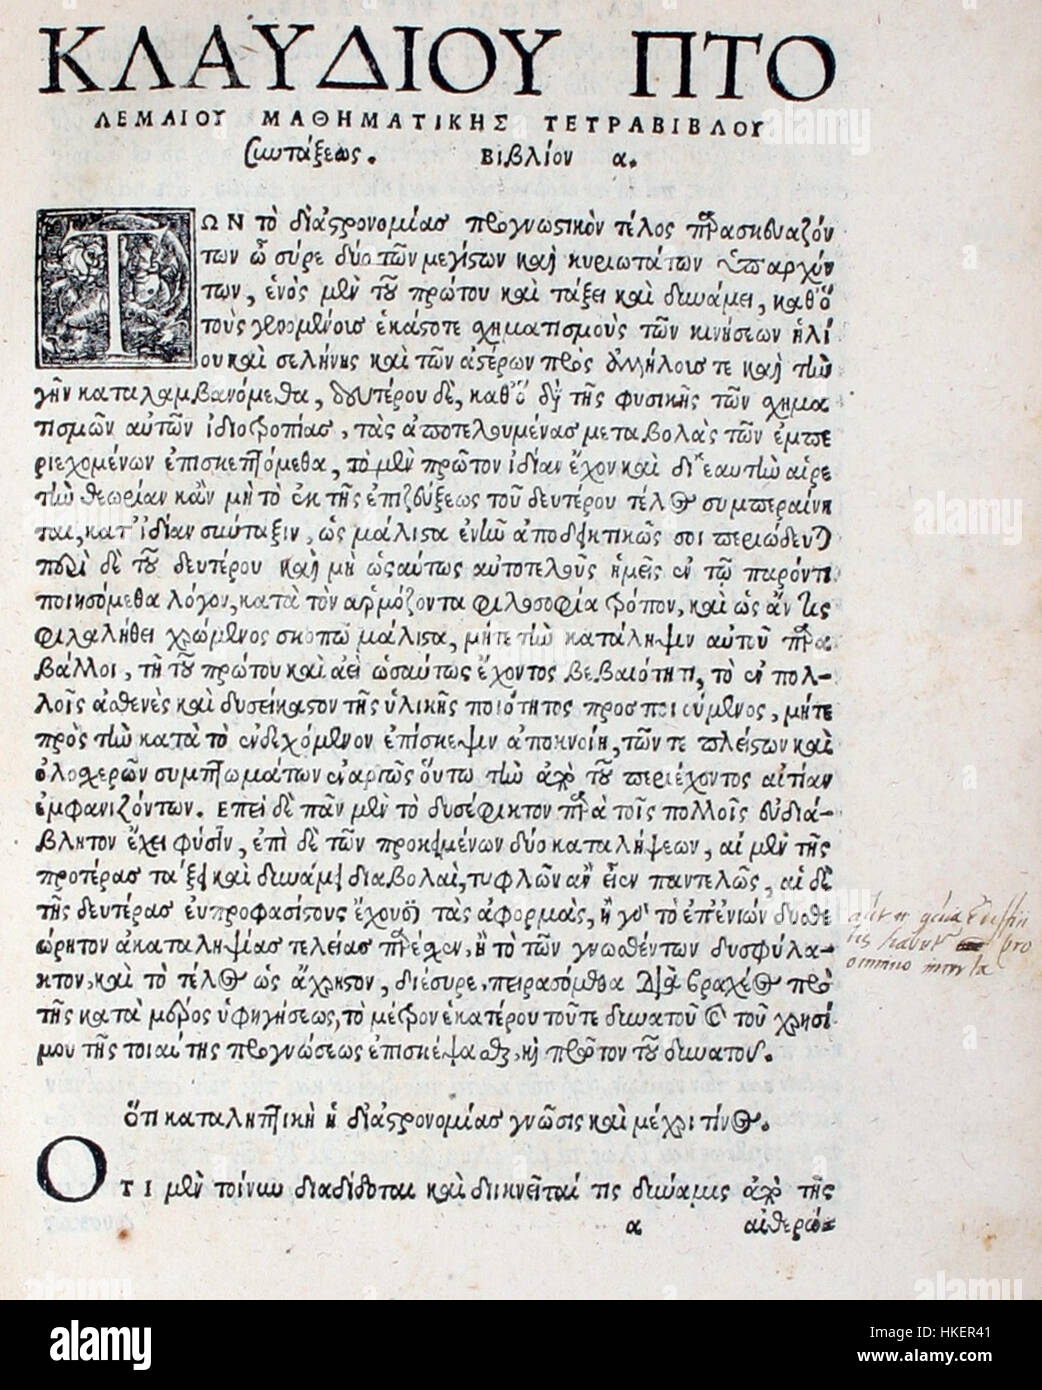 ΚΛΑΥΔΙΟΥ ΠΤΟ
ΛΕΜΑΙΟΥ ΜΑΘΗΜΑΤΙΚΗΣ ΤΕΤΡΑΒΙΒΛΟΥ
Συντάξεως. Βιβλίον α.
ΤΩΝ τὸ δι' ἀστρονομίας προγνωστικὸν τέλος παρασκευαζόν
των ὦ σύρε δύο τῶν μεγίστων καὶ κυριωτάτων ὑπαρχόν
των, ἑνὸς μὲν τοῦ πρώτου καὶ τάξει καὶ δυνάμει, καθ' ὃ
τοὺς γενομένους ἑκάστοτε σχηματισμοὺς τῶν κινήσεων ἡλί
ου καὶ σελήνης καὶ τῶν ἀστέρων πρὸς ἀλλήλους τε καὶ τὴν
γῆν καταλαμβανόμεθα, δευτέρου δὲ, καθ' ὃ διὰ τῆς φυσικῆς τῶν σχημα
τισμῶν αὐτῶν ἰδιοτροπίας, τὰς ἀποτελουμένας μεταβολὰς τῶν ἐμπε
ριεχομένων ἐπισκεπτόμεθα, τὸ μὲν πρῶτον ἰδίαν ἔχον καὶ δι' ἑαυτὴν αἱρε
τὴν θεωρίαν κἂν μὴ τὸ ἐκ τῆς ἐπιζεύξεως τοῦ δευτέρου τέλος συμπεραίνη
ται, κατ' ἰδίαν σύνταξιν, ὡς μάλιστα ἐνῆν ἀποδεικτικῶς σοι περιώδευται
περὶ δὲ τοῦ δευτέρου καὶ μὴ ὡσαύτως αὐτοτελοῦς ἡμεῖς ἐν τῷ παρόντι
ποιησόμεθα λόγον, κατὰ τὸν ἁρμόζοντα φιλοσοφία τρόπον, καὶ ὡς ἄν τις
φιλαλήθει χρώμενος σκοπῷ μάλιστα, μήτε τὴν κατάληψιν αὐτοῦ παρα
βάλλοι, τῇ τοῦ πρώτου καὶ ἀεὶ ὡσαύτως ἔχοντος βεβαιότητι, τὸ ἐν πολ-
λοῖς ἀσθενὲς καὶ δυσείκαστον τῆς ὑλικῆς ποιότητος προσποιούμενος, μήτε
πρὸς τὴν κατὰ τὸ ἐνδεχόμενον ἐπίσκεψιν ἀποκνοίη, τῶν τε πλείστων καὶ
ὁλοχερῶν συμπτωμάτων ἐναργῶς οὕτω τὴν ἀπὸ τοῦ περιέχοντος αἰτίαν
ἐμφανιζόντων. Επεὶ δὲ πᾶν μὲν τὸ δυσέφικτον παρὰ τοῖς πολλοῖς εὐδιά-
βλητον ἔχει φύσιν, ἐπὶ δὲ τῶν προκειμένων δύο καταλήψεων, αἱ μὲν τῆς
προτέρας τάξει καὶ δυνάμει διαβολαὶ, τυφλῶν ἂν εἶεν παντελῶς, αἱ δὲ
τῆς δευτέρας εὐπροφασίστους ἔχουσι τὰς ἀφορμὰς, ἢ γὰρ τὸ ἐπ' ἐνίων δυσθε
ώρητον ἀκαταληψίας τελείας παρέσχεν, ἢ τὸ τῶν γνωσθέντων δυσφύλα-
κτον, καὶ τὸ τέλος ὡς ἄχρηστον, διέσυρε, πειρασόμεθα διὰ βραχέος πρὸ
τῆς κατὰ μέρος ὑφηγήσεως, τὸ μέτρον ἑκατέρου τοῦ τε δυνατοῦ καὶ τοῦ χρησί
μου τῆς τοιαύτης προγνώσεως ἐπισκέψασθαι, καὶ πρῶτον τοῦ δυνατοῦ.
Ὅτι καταληπτικὴ ἡ δι' ἀστρονομίας γνῶσις καὶ μέχρι τίνος.
ΟΤΙ μὲν τοίνυν διαδίδοται καὶ διικνεῖται τις δύναμις ἀπὸ τῆς
α αἰθερώ-
alamy
Image ID: HKER41
www.alamy.com